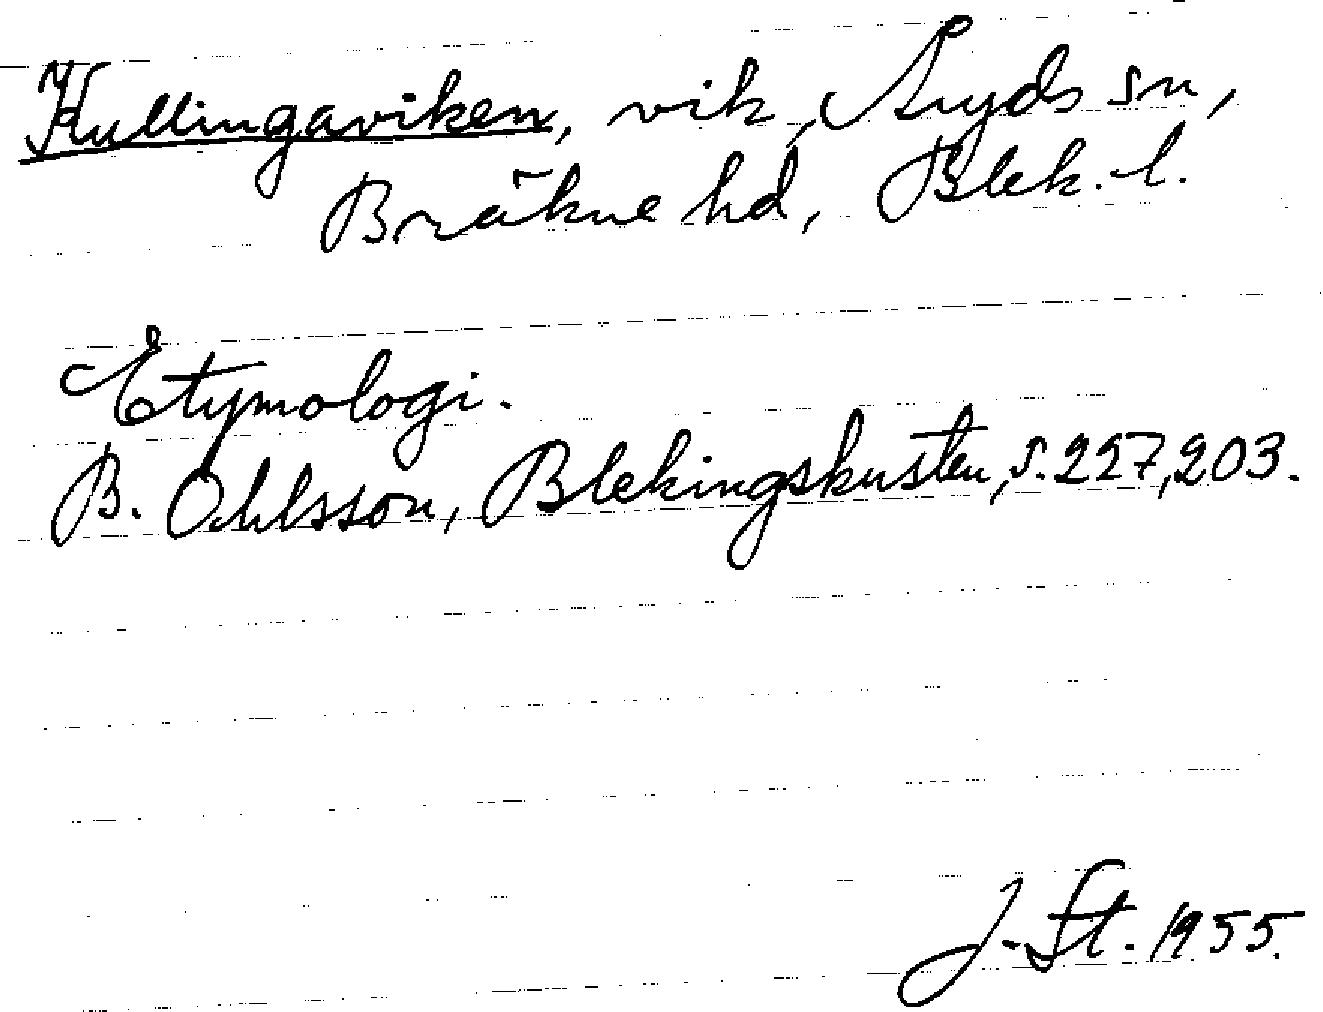 Kullingaviken, vik, Åryds sn,
Bräkne hd, Blek. l.
Etymologi.
B. Ohlsson, Blekingskusten, s. 227, 203.
J. St. 1955.